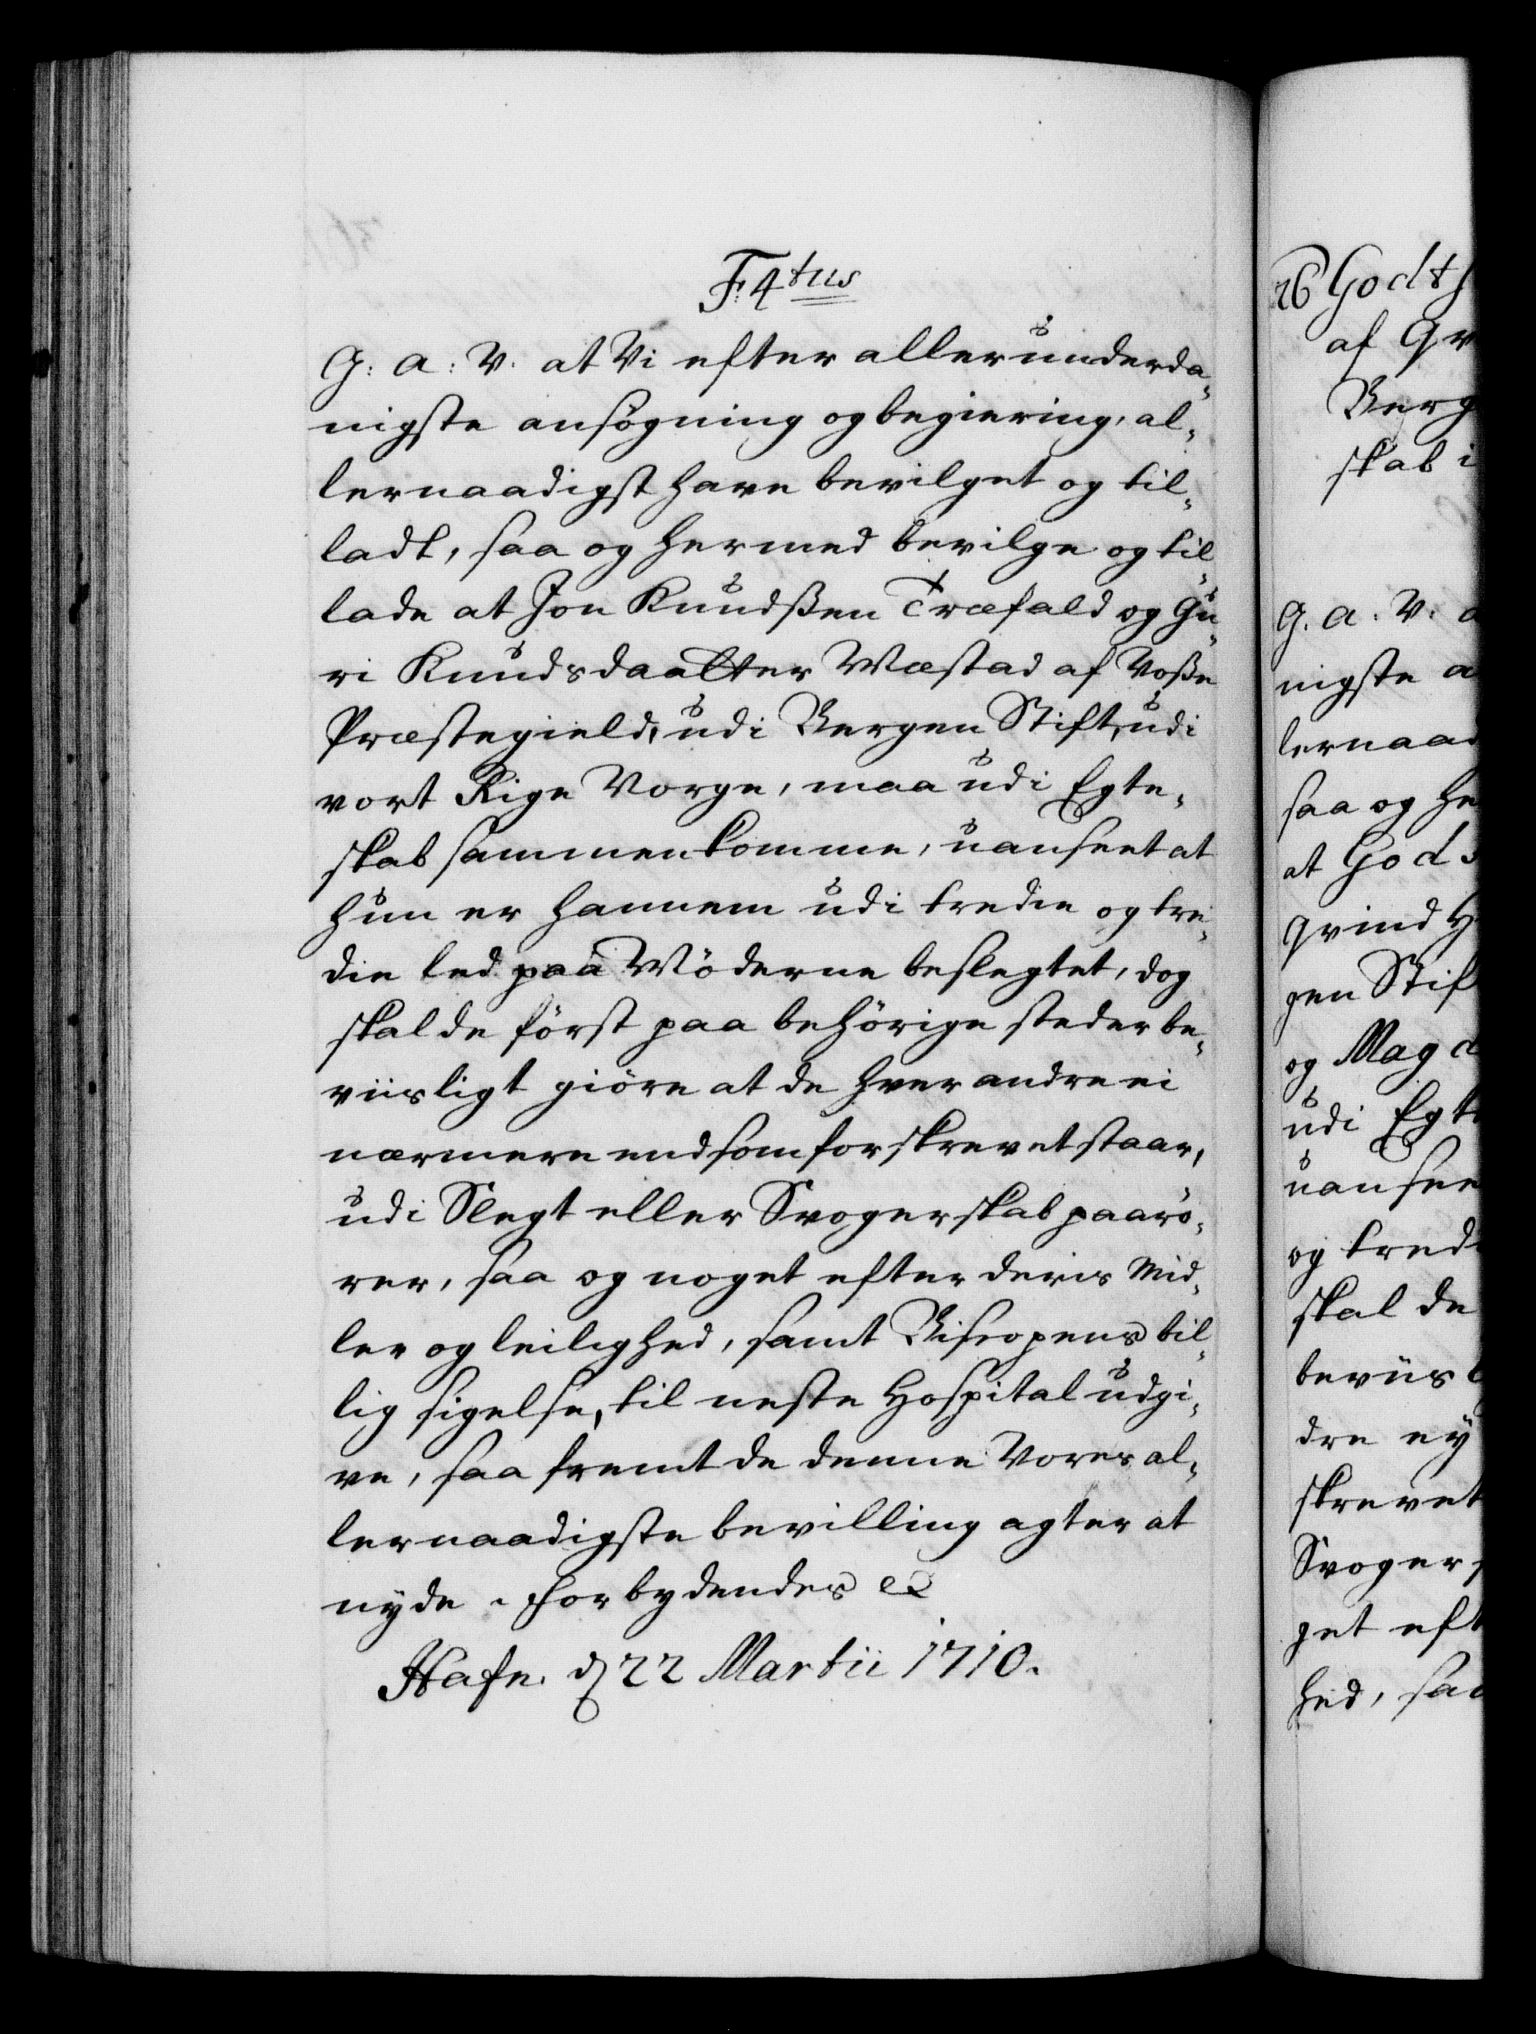 F. 4tus
G: A: V. at Vi efter allerunderda-
nigste ansøgning og begiering, al-
lernaadigst have bevilget og til-
ladt, saa og hermed bevilge og til
lade at Jon Knudsßen Træfald og Gu-
ri Knudsdaatter Wæstad af Voße
Præstegield, udi Bergen Stift, udi
vort Rige Norge, maa udi Egte-
skab sammenkomme, uanseet at
hun er hannem udi tredie og tre-
die led paa Möderne beslegtet, dog
skal de först paa behörige steder be-
viisligt giöre at de hver andre ei
nærmere end som forskrevet staar,
udi Slegt eller Svogerskab paarö-
rer, saa og noget efter deris Mid-
ler og leilighed, samt Biscopens bil-
lig sigelse, til neste Hospital udgi-
ve, saa fremt de denne Vores al-
lernaadigste bevilling agter at
nyde. Forbydendes etc
Hafn. d 22 Martii 1710.
26 Godth
af Qv
Berg
skab i
G. A. V. a
nigste a
lernaad
saa og he
at Gods
qvind H
gen Stif
og Magd
udi Egte
uansee
og tredi
skal de
beviis l
dre ey
skrevet
Svoger s
get eft
hed, sa